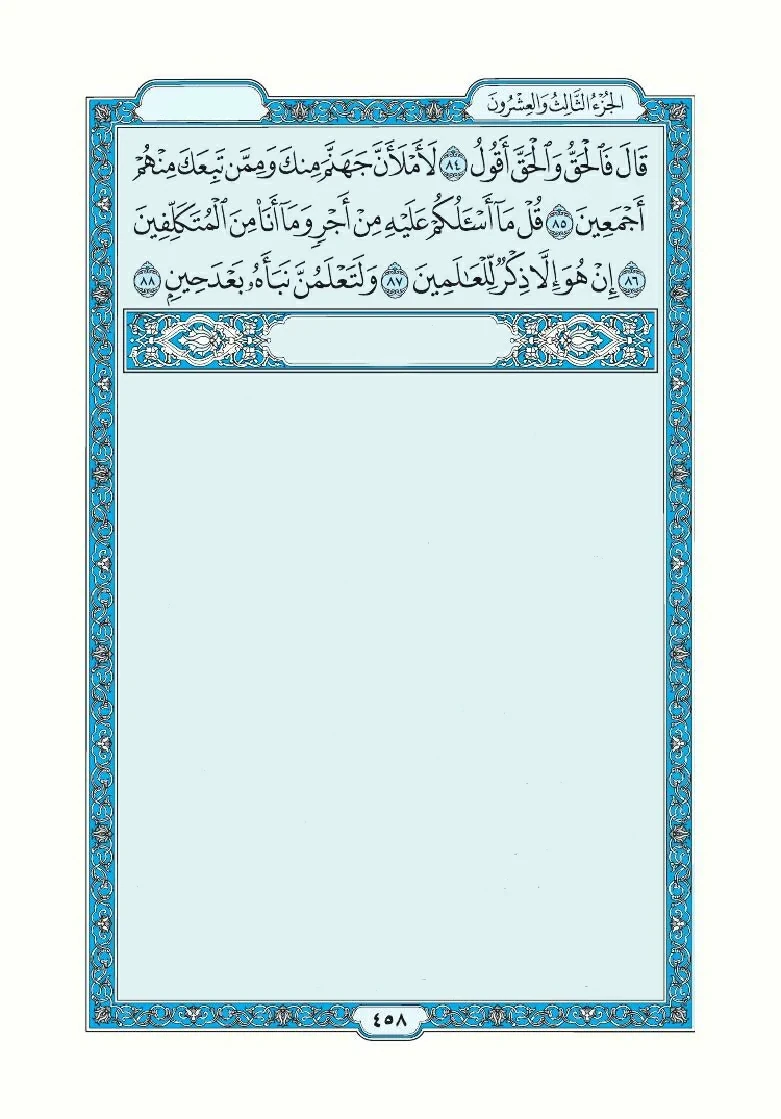 الجُزْءُ الثَّالِثُ وَالعِشْرُونَ
قَالَ فَٱلْحَقُّ وَٱلْحَقَّ أَقُولُ ٨٤ لَأَمْلَأَنَّ جَهَنَّمَ مِنكَ وَمِمَّن تَبِعَكَ مِنْهُمْ
أَجْمَعِينَ ٨٥ قُلْ مَآ أَسْـَٔلُكُمْ عَلَيْهِ مِنْ أَجْرٍ وَمَآ أَنَا۠ مِنَ ٱلْمُتَكَلِّفِينَ
٨٦ إِنْ هُوَ إِلَّا ذِكْرٌ لِّلْعَـٰلَمِينَ ٨٧ وَلَتَعْلَمُنَّ نَبَأَهُۥ بَعْدَ حِينٍ ٨٨
٤٥٨